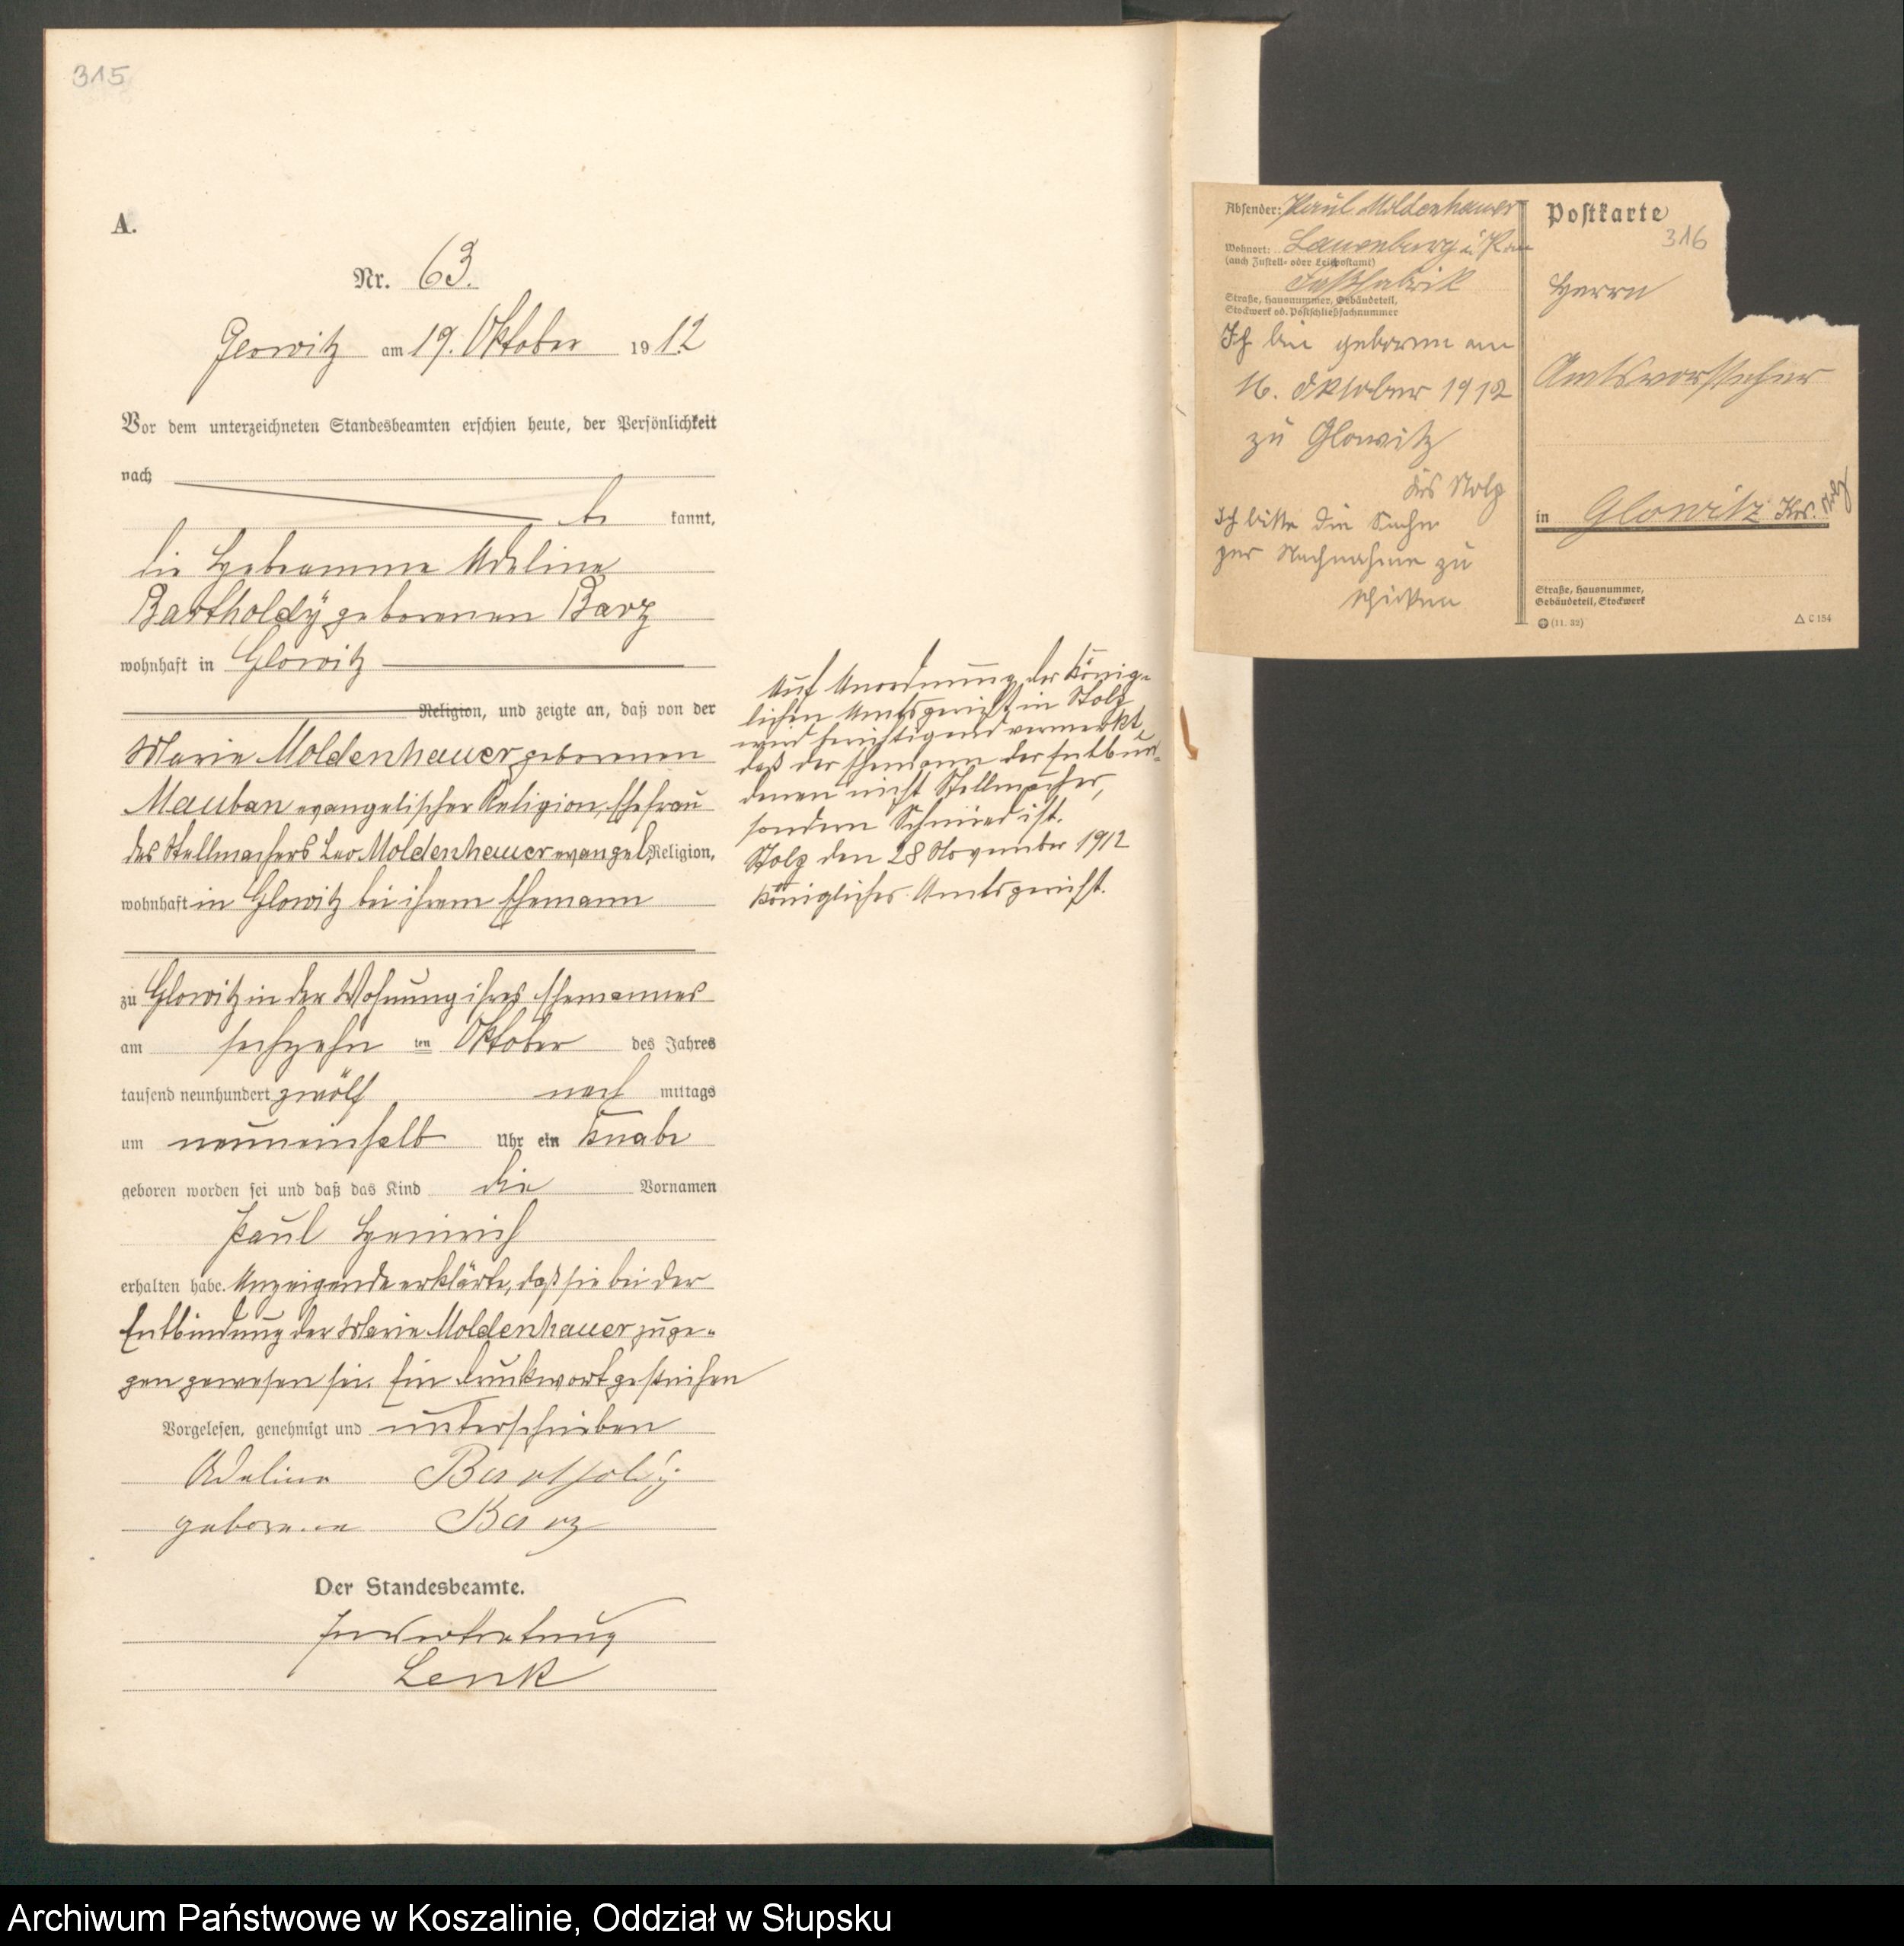 315
A.
Nr. 63.
Glowitz am 19. Oktober 1912
Vor dem unterzeichneten Standesbeamten erschien heute, der Persönlichkeit
nach
be kannt,
die Hebeamme Adeline
Bartholdÿ geborenen Barz
wohnhaft in Glowitz
Religion, und zeigte an, daß von der
Marie Moldenhauer geborenen
Mauban evangelischer Religion, Ehefrau
des Stellmachers Leo Moldenhauer evangel. Religion,
wohnhaft in Glowitz bei ihrem Ehemann
zu Glowitz in der Wohnung ihres Ehemannes
am sechzehn ten Oktober des Jahres
tausend neunhundert zwölf nach mittags
um neuneinhalb Uhr ein Knabe
geboren worden sei und daß das Kind die Vornamen
Paul Heinrich
erhalten habe. Anzeigende erklärte, daß sie bei der
Entbindung der Marie Moldenhauer zuge-
gen gewesen sei. Ein Druckwort gestrichen
Vorgelesen, genehmigt und unterschrieben
Adeline Bartholdÿ
geborene Barz
Der Standesbeamte.
In Vertretung
Lenk
Auf Anordnung des König-
lichen Amtsgericht in Stolp
wird berichtigend vermerkt,
daß der Ehemann der Entbun-
denen nicht Stellmacher,
sondern Schmied ist.
Stolp den 28 November 1912
Königliches Amtsgericht.
Absender: Paul Moldenhauer
Wohnort: Lauenburg i. Pom
(auch Zustell- oder Leitpostamt)
Faßfabrik
Straße, Hausnummer, Gebäudeteil,
Stockwerk od. Postschließfachnummer
Ich bin geboren am
16. Oktober 1912
zu Glowitz
Krs Stolp
Ich bitte die Sache
per Nachnahme zu
schicken
Postkarte
316
Herrn
Amtsvorsteher
in Glowitz Krs. Stolp
Straße, Hausnummer,
Gebäudeteil, Stockwerk
(11. 32)
C 154
Archiwum Państwowe w Koszalinie, Oddział w Słupsku